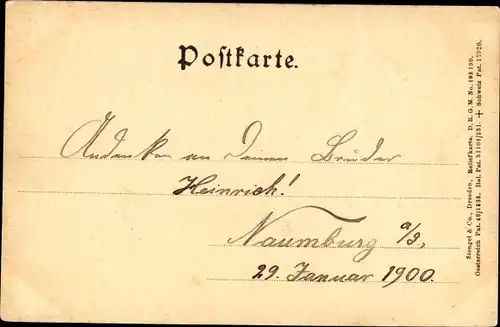 Postkarte.
Andenken an Deinen Bruder
Heinrich!
Naumburg a/S,
29. Januar 1900.
Stengel & Co., Dresden, Reliefkarte. D. R. G. M. No. 193 130.
Oesterreich Pat. 49/1838. Ital. Pat. 51108/251. + Schweiz Pat. 17920.